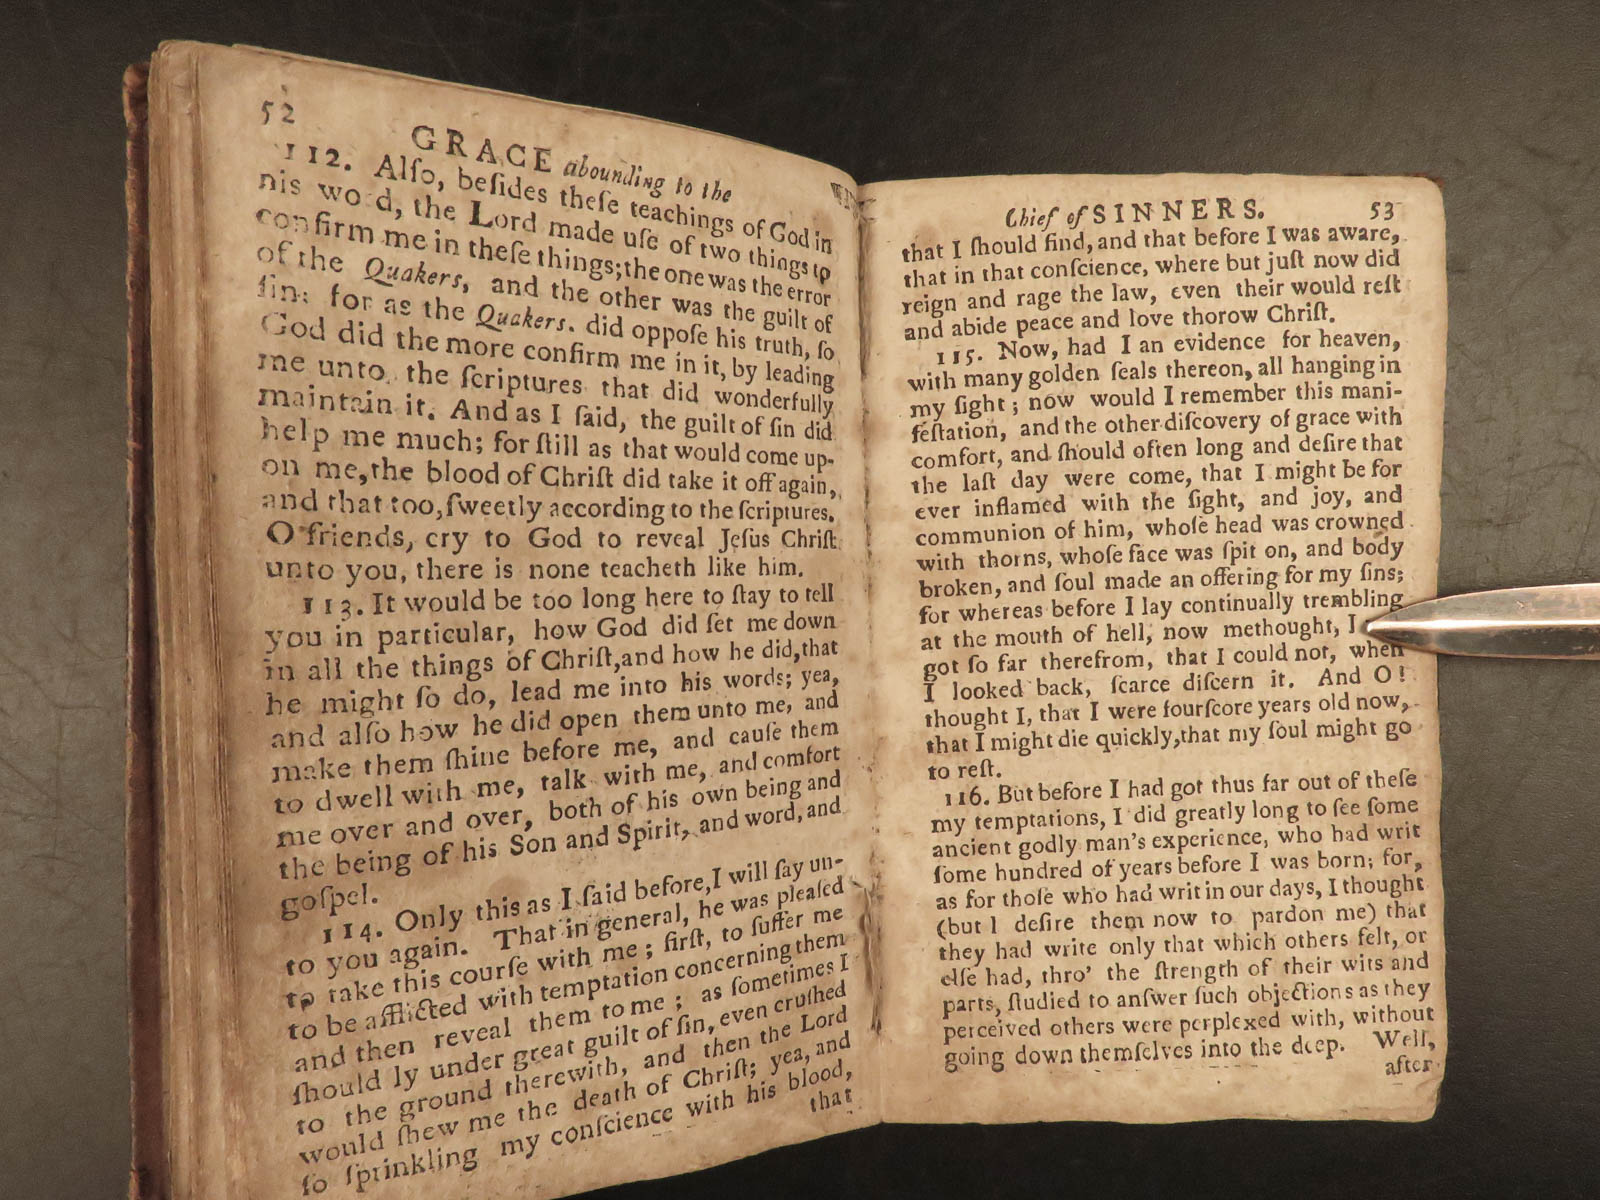 52
GRACE abounding to the
112. Alſo, beſides theſe teachings of God in
his wo d, the Lord made uſe of two things to
confirm me in theſe things; the one was the error
of the Quakers, and the other was the guilt of
ſin: for as the Quakers. did oppoſe his truth, ſo
God did the more confirm me in it, by leading
me unto the ſcriptures that did wonderfully
maintain it. And as I ſaid, the guilt of ſin did
help me much; for ſtill as that would come up-
on me, the blood of Chriſt did take it off again,
and that too, ſweetly according to the ſcriptures.
O friends, cry to God to reveal Jeſus Chriſt
unto you, there is none teacheth like him.
113. It would be too long here to ſtay to tell
you in particular, how God did ſet me down
in all the things of Chriſt, and how he did, that
he might ſo do, lead me into his words; yea,
and alſo how he did open them unto me, and
make them ſhine before me, and cauſe them
to dwell with me, talk with me, and comfort
me over and over, both of his own being and
the being of his Son and Spirit, and word, and
goſpel.
114. Only this as I ſaid before, I will ſay un-
to you again. That in general, he was pleaſed
to take this courſe with me; firſt, to ſuffer me
to be afflicted with temptation concerning them
and then reveal them to me; as ſometimes I
ſhould ly under great guilt of ſin, even cruſhed
to the ground therewith, and then the Lord
would ſhew me the death of Chriſt; yea, and
ſo ſprinkling my conſcience with his blood,
that
Chief of SINNERS. 53
that I ſhould find, and that before I was aware,
that in that conſcience, where but juſt now did
reign and rage the law, even their would reſt
and abide peace and love thorow Chriſt.
115. Now, had I an evidence for heaven,
with many golden ſeals thereon, all hanging in
my ſight; now would I remember this mani-
feſtation, and the other diſcovery of grace with
comfort, and ſhould often long and deſire that
the laſt day were come, that I might be for
ever inflamed with the ſight, and joy, and
communion of him, whoſe head was crowned
with thorns, whoſe face was ſpit on, and body
broken, and ſoul made an offering for my ſins;
for whereas before I lay continually trembling
at the mouth of hell, now methought, I
got ſo far therefrom, that I could not, when
I looked back, ſcarce diſcern it. And O!
thought I, that I were fourſcore years old now,
that I might die quickly, that my ſoul might go
to reſt.
116. But before I had got thus far out of theſe
my temptations, I did greatly long to ſee ſome
ancient godly man's experience, who had writ
ſome hundred of years before I was born; for,
as for thoſe who had writ in our days, I thought
(but I deſire them now to pardon me) that
they had write only that which others felt, or
elſe had, thro' the ſtrength of their wits and
parts, ſtudied to anſwer ſuch objections as they
perceived others were perplexed with, without
going down themſelves into the deep. Well,
after